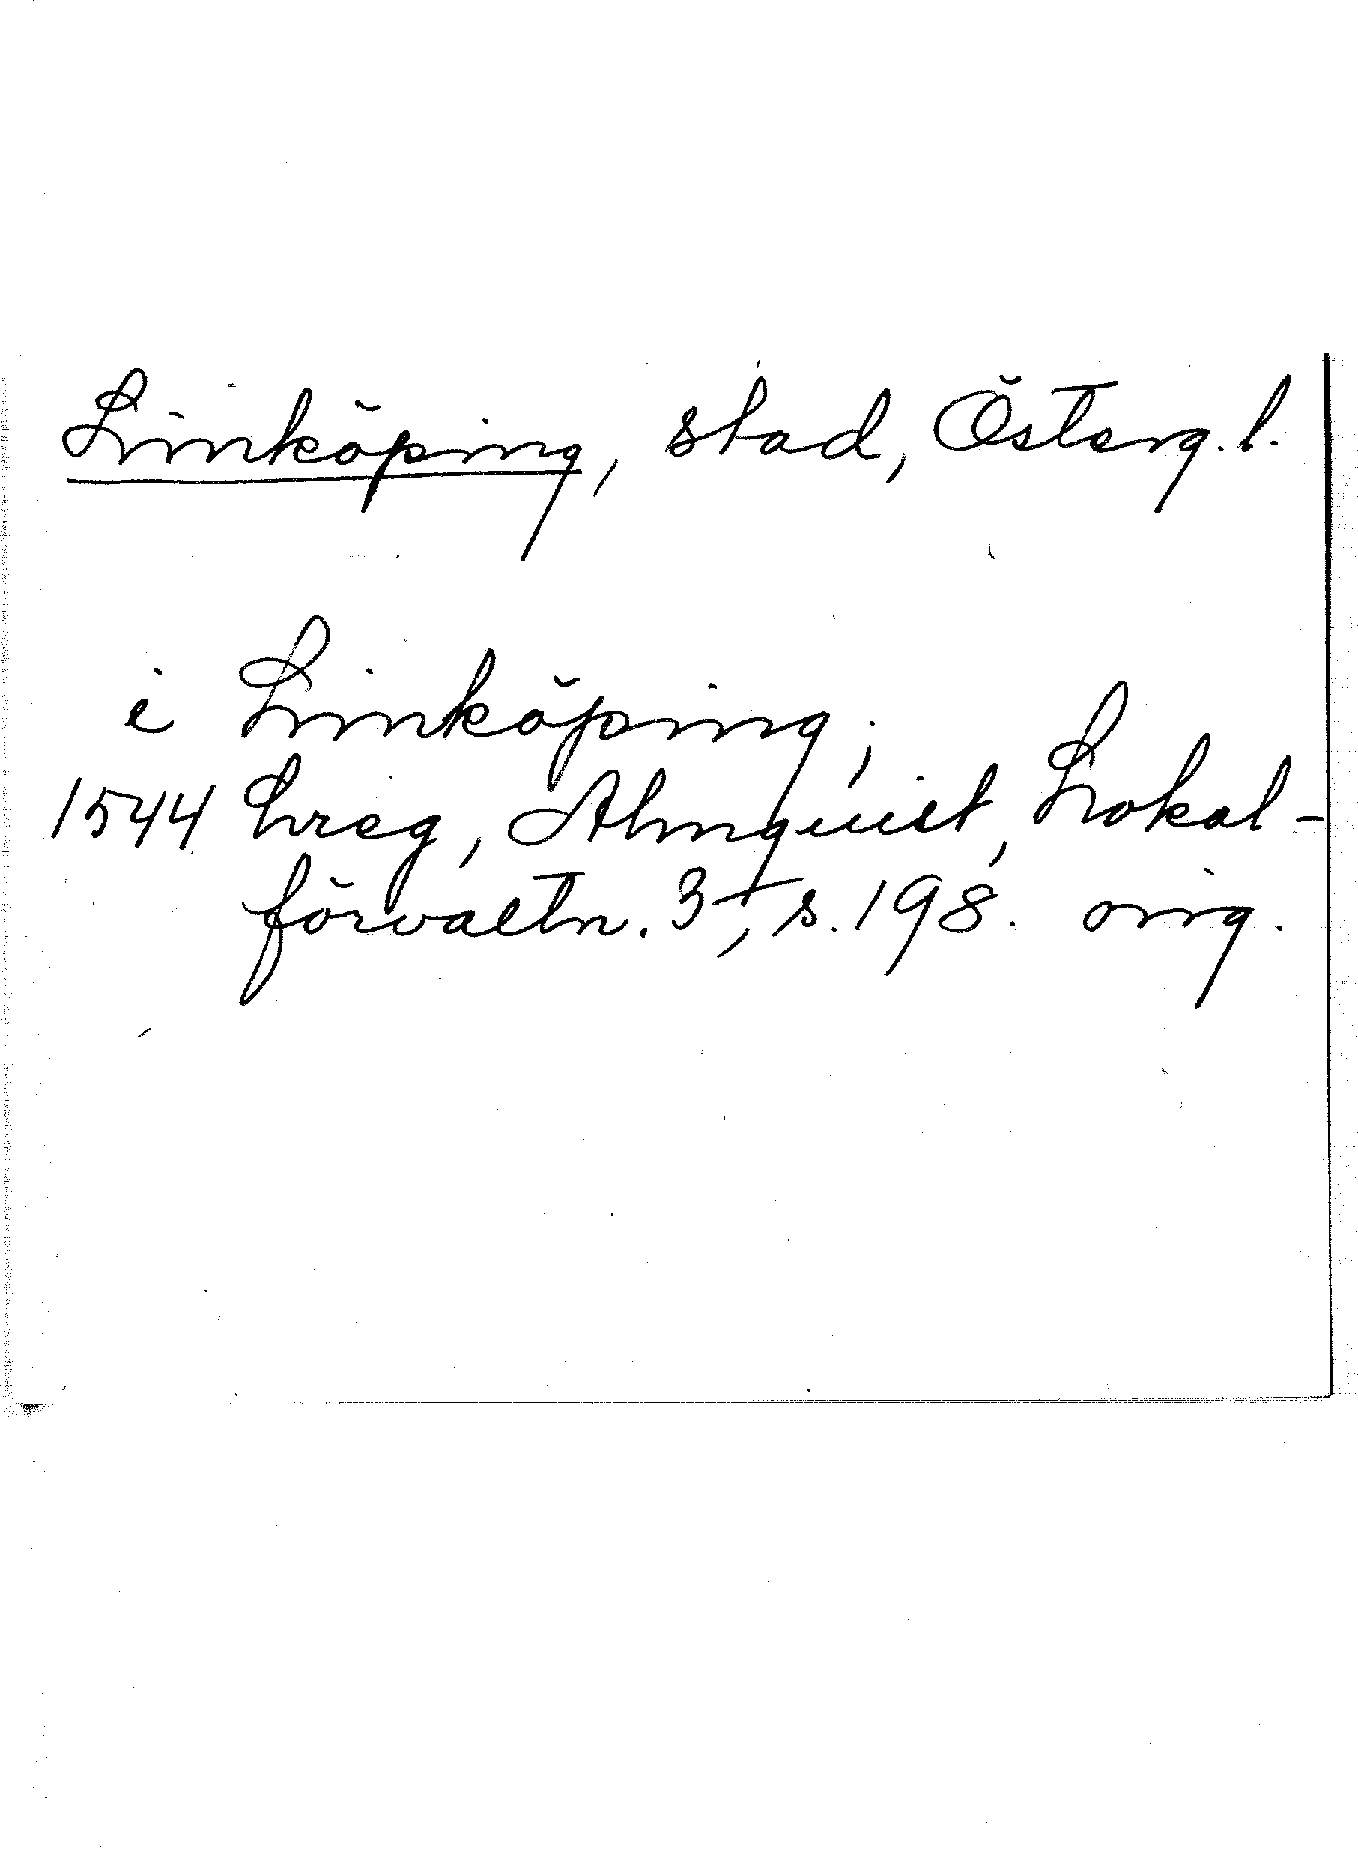 Linköping, stad, Österg. l.
i Linköping,
1544 Lreg, Almquist, Lokal-
förvaltn. 3, s. 198. orig.